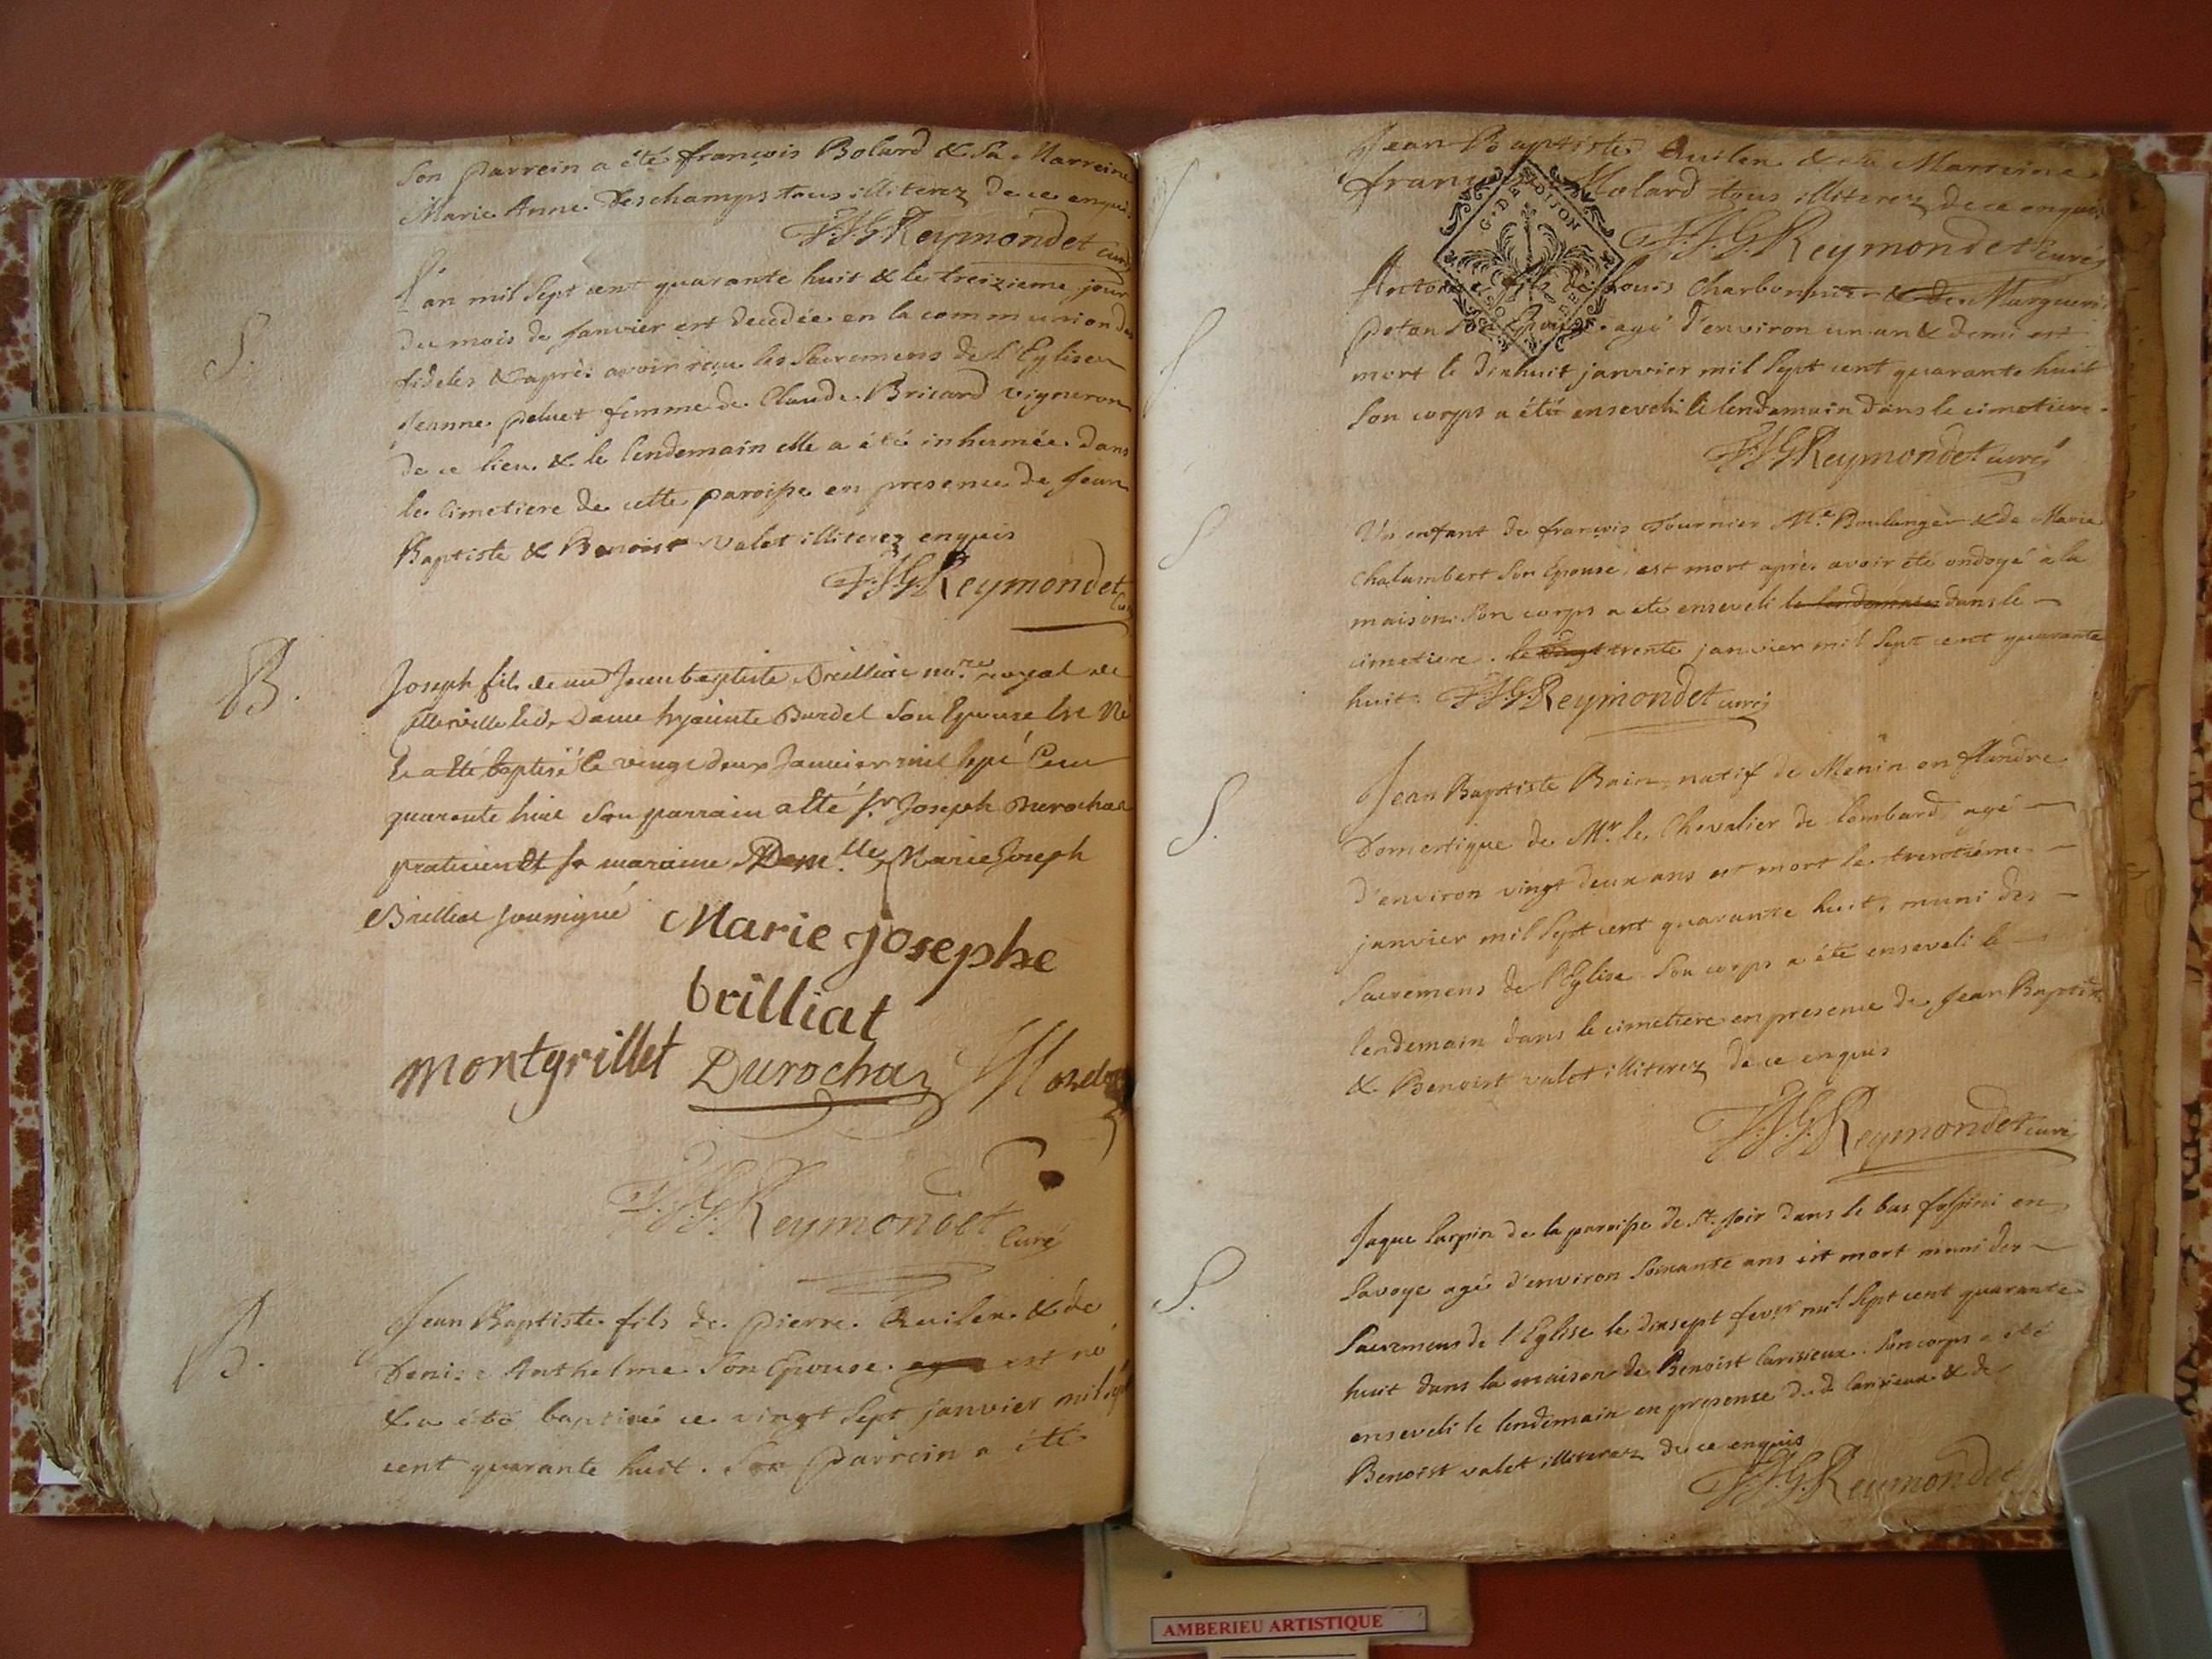 Son parrein a été françois Bolard & Sa Marreine
Marie Anne Deschamps tous illiterez de ce enquis
F.J.G. Reymondet curé
S.
L'an mil Sept cent quarante huit & le treizieme jour
du mois de Janvier est decedée en la communion des
fideles & après avoir reçu les Sacremens de l'Eglise
Jeanne peluet femme de Claude Bricard vigneron
de ce lieu & le lendemain elle a été inhumée dans
le Cimetiere de cette paroisse en presence de Jean
Baptiste & Benoist valet illiterez enquis
F.J.G. Reymondet
B.
Joseph fils de me Jean baptiste Brilliat no.re royal de
cette ville & de Dame hyacinte Burdel Son Epouse Est Né
& a été baptisé le vingt deux Janvier mil Sept Cent
quarante huit Son parrain a été Sr. Joseph Durochat
praticien Et Sa maraine Dem.lle Marie Joseph
Brilliat Soussigné
Marie josephe
brilliat
montgrillet Durochat
F.J.G. Reymondet
Curé
B.
Jean Baptiste fils de pierre Quilen & de
Denise Anthelme Son Epouse est né
& a été baptisé ce vingt Sept janvier mil Sept
cent quarante huit. Son parrein a été
Jean Baptiste Quilen & Sa Marreine
Molard tous illiterez de ce enquis
G. DE DIJON
F.J.G. Reymondet curé
S.
Antoine fils de Louis Charbonnier & de Marguerite
peton Son Epouse agé d'environ un an & demi est
mort le dixhuit janvier mil Sept cent quarante huit
Son corps a été enseveli le lendemain dans le cimetiere.
F.J.G. Reymondet curé
S
Un enfant de françois Tournier Me. Boulanger & de Marie
Chalumbert Son Epouse, est mort après avoir été ondoyé a la
maison. Son corps a été enseveli le lendemain dans le
cimetiere. le vingt trente janvier mil Sept cent quarante
huit. F.J.G. Reymondet curé
S.
Jean Baptiste Bain, natif de Menin en flandre
Domestique de Mr. le Chevalier de Lombard, agé
d'environ vingt deux ans est mort le trentiéme
janvier mil Sept cent quarante huit, muni des
Sacremens de l'Eglise Son corps a été enseveli le
lendemain dans le cimetiere en presence de Jean Baptiste
& Benoist valet illiterez de ce enquis
F.J.G. Reymondet curé
S.
Jaque Larpin de la paroisse de St. Joir dans le bas fossini en
Savoye agé d'environ Soixante ans est mort muni des
Sacremens de l'Eglise le dixsept fevr. mil Sept cent quarante
huit dans la maison de Benoist Carisieux. Son corps a été
enseveli le lendemain en presence du d. Carisieux & de
Benoist valet illiterez de ce enquis
F.J.G. Reymondet
AMBERIEU ARTISTIQUE